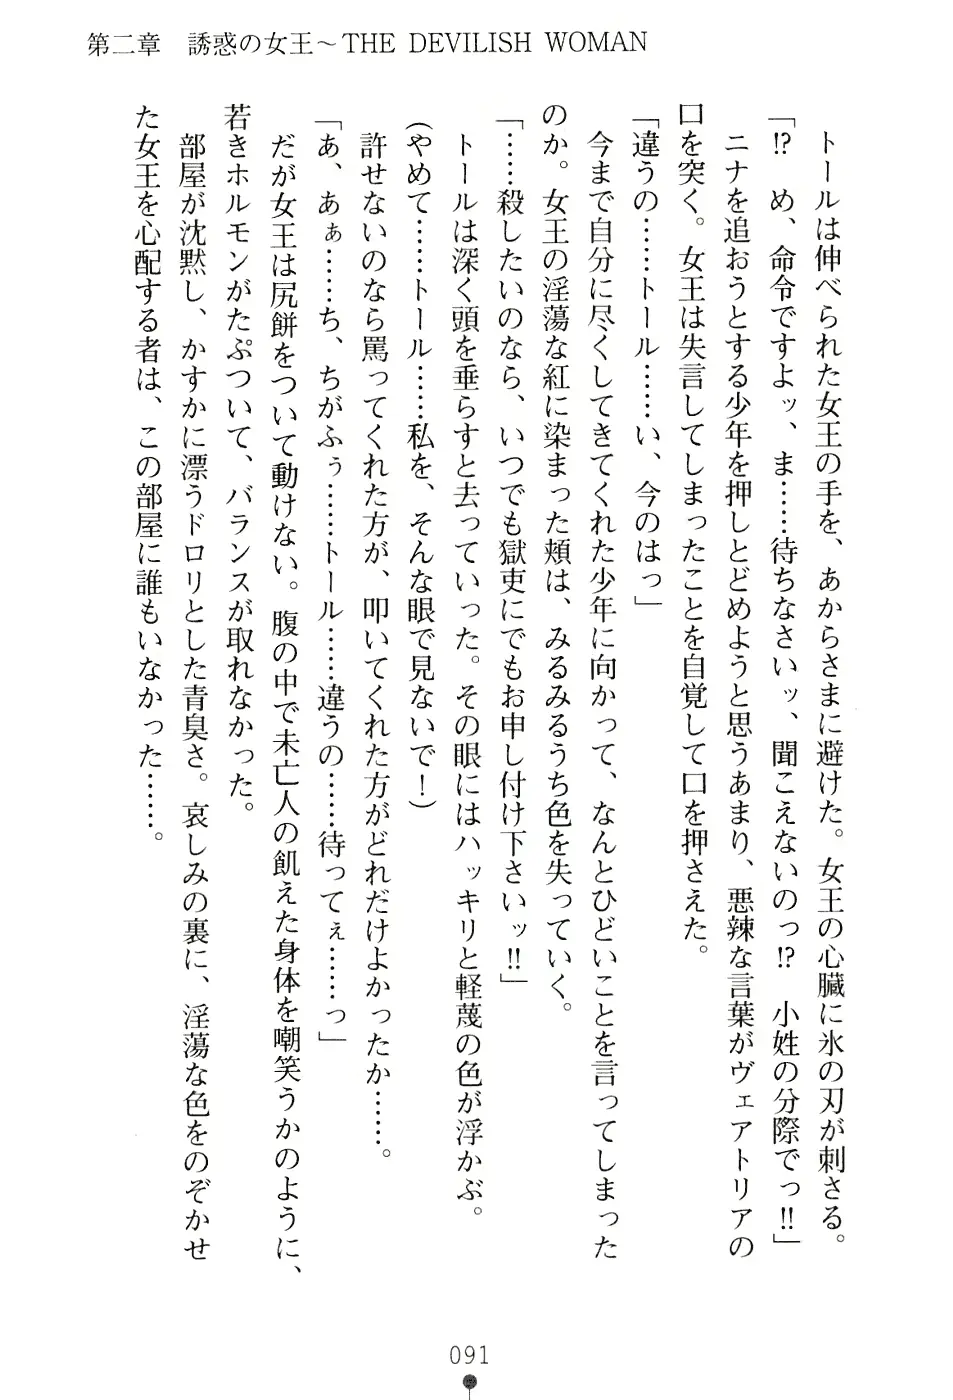 第二章　誘惑の女王～THE DEVILISH WOMAN
　トールは伸べられた女王の手を、あからさまに避けた。女王の心臓に氷の刃が刺さる。
「⁉　め、命令ですよッ、ま……待ちなさいッ、聞こえないのっ⁉　小姓の分際でっ‼」
　ニナを追おうとする少年を押しとどめようと思うあまり、悪辣な言葉がヴェアトリアの
口を突く。女王は失言してしまったことを自覚して口を押さえた。
「違うの……トール……い、今のはっ」
　今まで自分に尽くしてきてくれた少年に向かって、なんとひどいことを言ってしまった
のか。女王の淫蕩な紅に染まった頬は、みるみるうち色を失っていく。
「……殺したいのなら、いつでも獄吏にでもお申し付け下さいッ‼」
　トールは深く頭を垂らすと去っていった。その眼にはハッキリと軽蔑の色が浮かぶ。
(やめて……トール……私を、そんな眼で見ないで！)
　許せないのなら罵ってくれた方が、叩いてくれた方がどれだけよかったか……。
「あ、あぁ……ち、ちがふぅ……トール……違うの……待ってぇ……っ」
　だが女王は尻餅をついて動けない。腹の中で未亡人の飢えた身体を嘲笑うかのように、
若きホルモンがたぷついて、バランスが取れなかった。
　部屋が沈黙し、かすかに漂うドロリとした青臭さ。哀しみの裏に、淫蕩な色をのぞかせ
た女王を心配する者は、この部屋に誰もいなかった……。
091